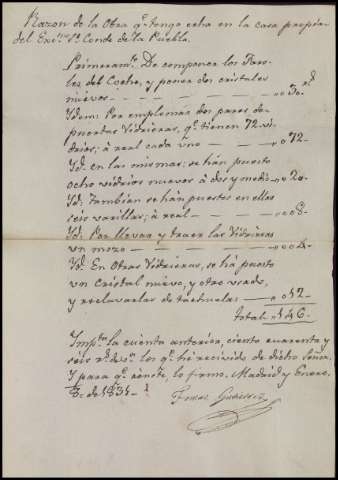 Razon de la Obra q.e tengo echa en la casa propia
del Ex.mo S.r Conde de la Puebla.
Primeram.te De componer los Faro-
les del Coche, y poner dos cristales
nuevos 30 r.s
Idem: Por emplomar dos pares de
puertas Vidrieras, q.e tienen 72 vi-
drios, à real cada uno 072.
Yd. en las mismas; se hán puesto
ocho vidrios nuevos à dos y medio 020.
Yd. Tambien se hán puesto en ellas
seis varillas; à real 006.
Yd. Por llevar y traer las Vidrieras
un mozo 004.
Yd. En Otras Vidrieras, se há puesto
un Cristal nuevo, y otro usado,
y reclavarlas de tachuelas 012.
Total 146.
Ymp.ta la cuenta anterior, ciento cuarenta y
seis r.s v.n los q.e hé recivido de dicho Señor,
Y para q.e conste lo firmo, Madrid y Enero
de 1831